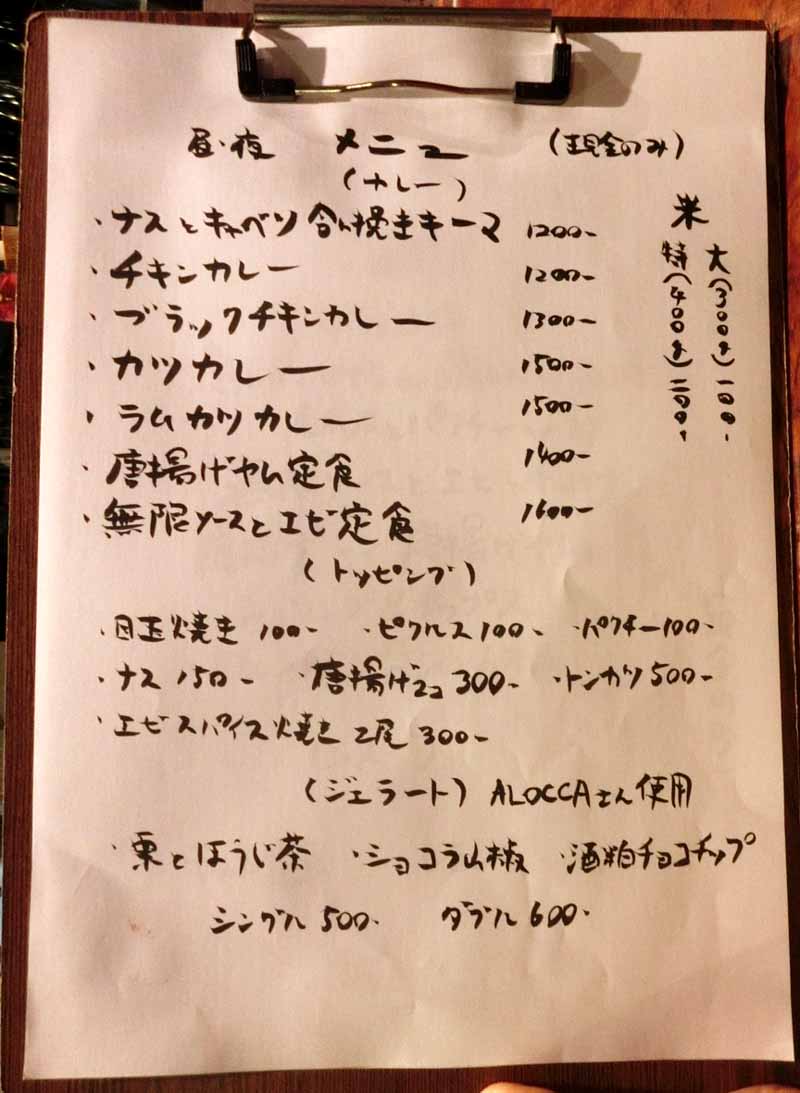 昼・夜 メニュー (現金のみ)
(カレー)
・ナスとキャベツ合い挽きキーマ 1200-
・チキンカレー 1200-
・ブラックチキンカレー 1300-
・カツカレー 1500-
・ラムカツカレー 1500-
・唐揚げヤム定食 1400-
・無限ソースとエビ定食 1600-
米
大(300g)一〇〇-
特(400g)二〇〇-
(トッピング)
・目玉焼き 100- ・ピクルス 100- ・パクチー 100-
・ナス 150- ・唐揚げ2コ 300- ・トンカツ 500-
・エビスパイス焼き 2尾 300-
(ジェラート) ALOCCAさん使用
・栗とほうじ茶 ・ショコラ山椒 ・酒粕チョコチップ
シングル 500- ダブル 600-